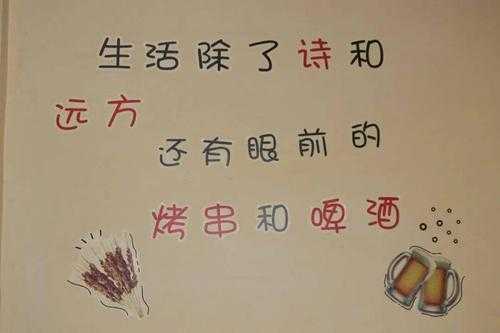 生活除了诗和
远方
还有眼前的
烤串和啤酒